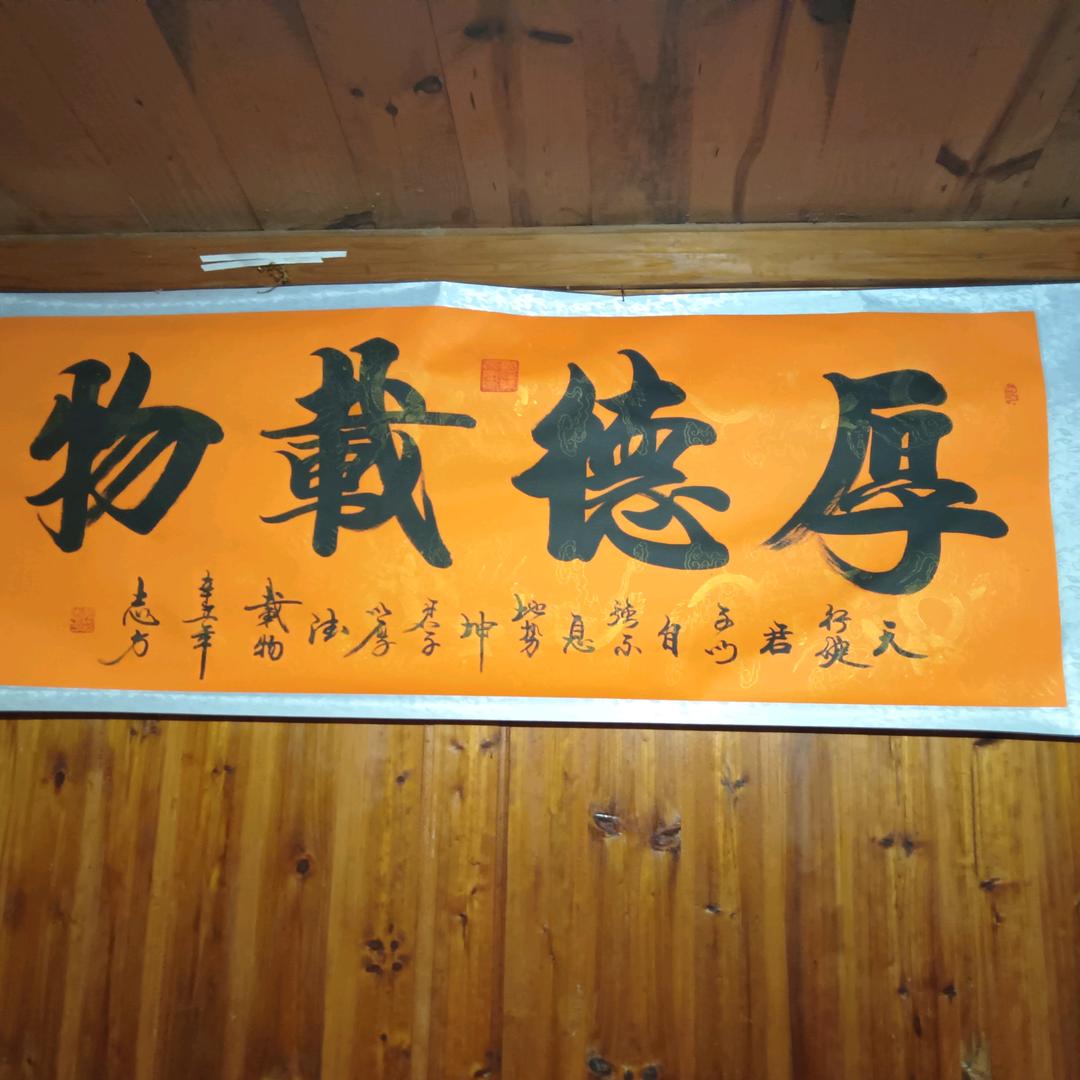 厚德載物
天行健君子以自強不息地勢坤君子以厚德載物辛丑年志方